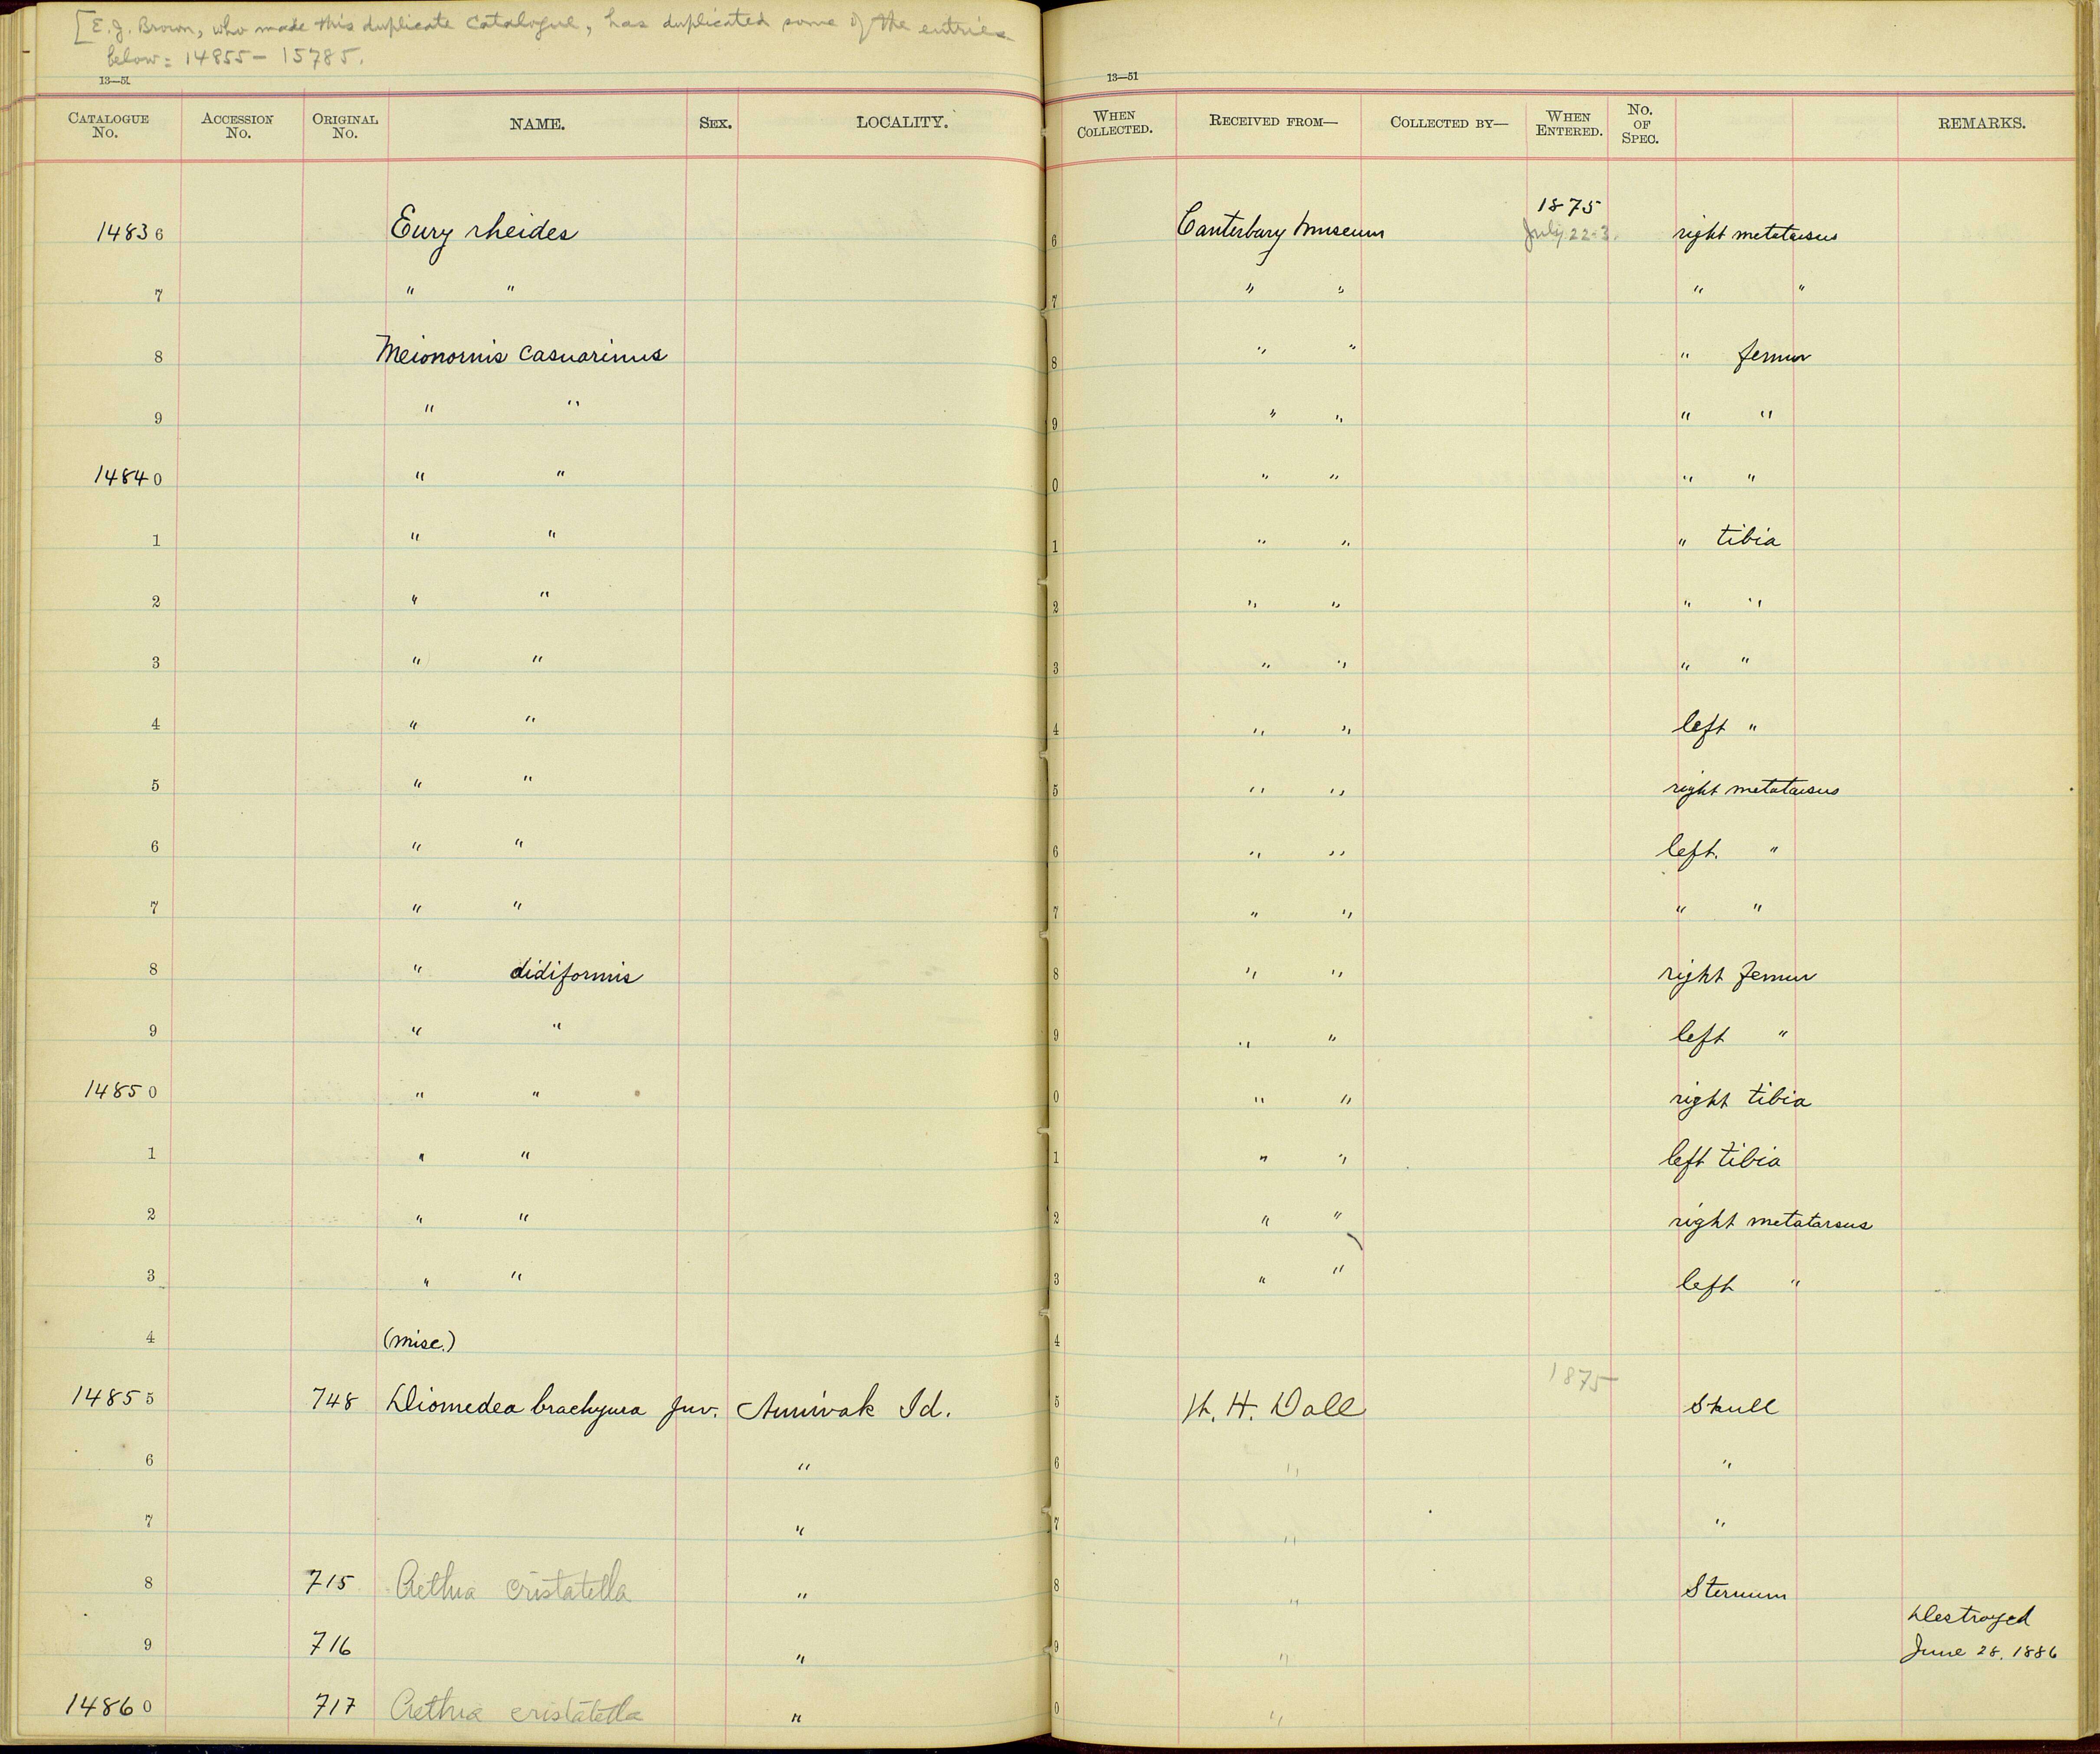 [E. J. Brown, who made this duplicate catalogue, has duplicated some of the entries
below = 14855 – 15785.
13—51
13—51
CATALOGUE No. ACCESSION No. ORIGINAL No. NAME. SEX. LOCALITY. WHEN COLLECTED. RECEIVED FROM— COLLECTED BY— WHEN ENTERED. No. OF SPEC. REMARKS.
1875
14836 Eury rheides 6 Canterbury Museum July 22-3. right metatarsus
7 " " 7 " " " "
8 Meionornis casuarinus 8 " " " femur
9 " " 9 " " " "
14840 " " 0 " " " "
1 " " 1 " " " tibia
2 " " 2 " " " "
3 " " 3 " " " "
4 " " 4 " " left "
5 " " 5 " " right metatarsus
6 " " 6 " " left. "
7 " " 7 " " " "
8 " didiformis 8 " " right femur
9 " " 9 " " left "
14850 " " 0 " " right tibia
1 " " 1 " " left tibia
2 " " 2 " " right metatarsus
3 " " 3 " " left "
4 (misc.) 4
1875
14855 748 Diomedea brachyura Juv. Id. 5 H. Dall Skull
6 " 6 " "
7 " 7 " "
8 715 Aethia cristatella " 8 " Sternum
Destroyed
9 716 " 9 " June 28, 1886
14860 717 Aethia cristatella " 0 "